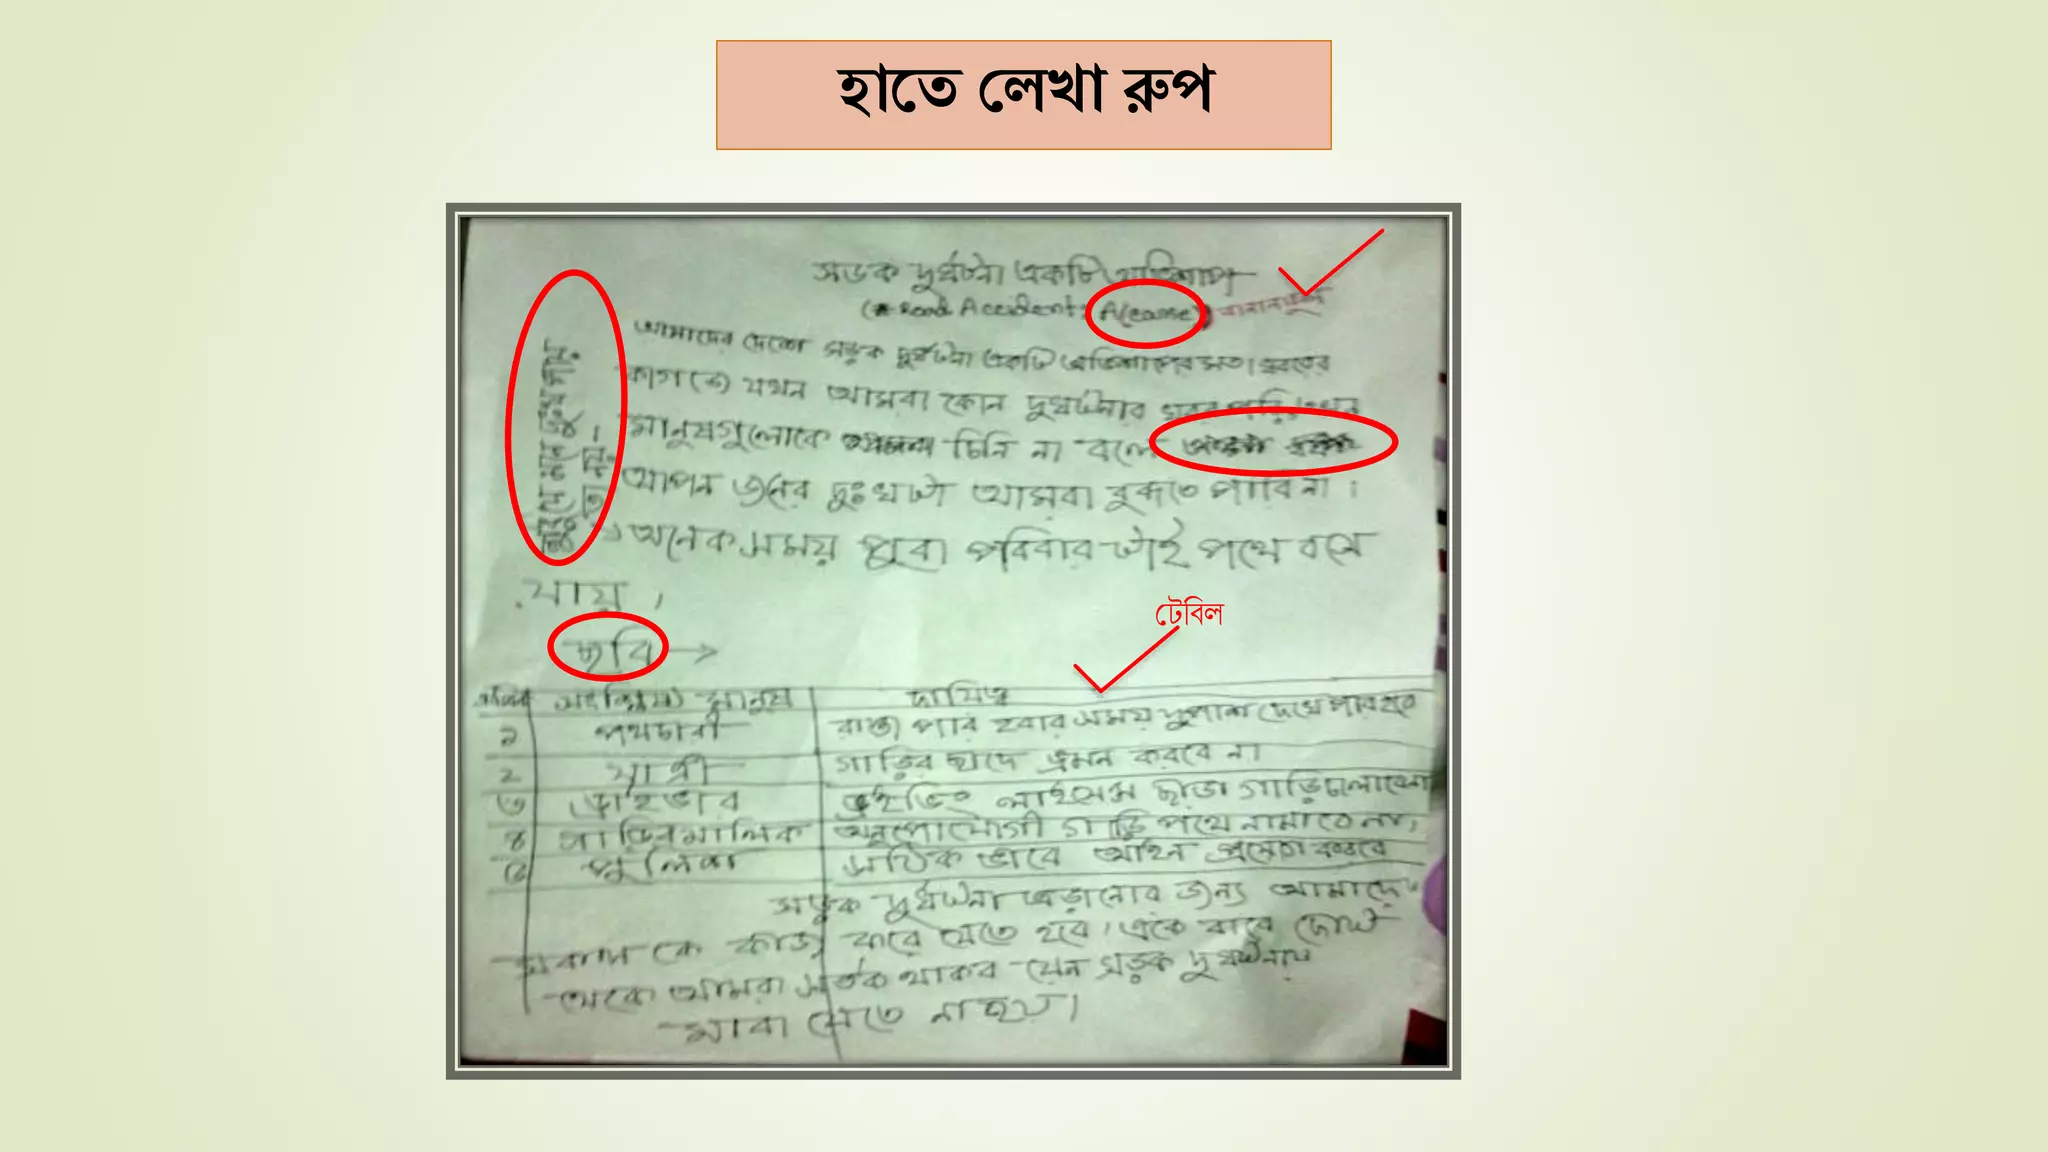 হাতে লেখা রুপ
সড়ক দুর্ঘটনা একটি অভিশাপ
(Road Accident: A (cause))
আমাদের দেশে সড়ক দুর্ঘটনা একটি অভিশাপের মত। খবরের
কাগজে যখন আমরা কোন দুর্ঘটনার খবর পরি, তখন
মানুষগুলোকে চিনি না বলে
আপন জনের দুঃখটা আমরা বুঝতে পারি না।
অনেক সময় পুরা পরিবারটাই পথে বসে
যায়।
ছবি →
টেবিল
মানুষ দায়িত্ব
১ পথচারী রাস্তা পার হবার সময় দুপাশ দেখে পার হবে
২ যাত্রী গাড়ির ছাদে ভ্রমন করবে না
৩ ড্রাইভার ড্রাইভিং লাইসেন্স ছাড়া গাড়ি চালাবেনা
৪ গাড়ির মালিক অনুপোযোগী গাড়ি পথে নামাবে না,
৫ পুলিশ সঠিক ভাবে আইন প্রয়োগ করবে
সড়ক দুর্ঘটনা এড়ানোর জন্য আমাদের
সকল কে কাজ করে যেতে হবে। একে বারে ছোট
থেকে আমরা সর্তক থাকব যেন সড়ক দুর্ঘটনায়
মারা যেতে না হয়।